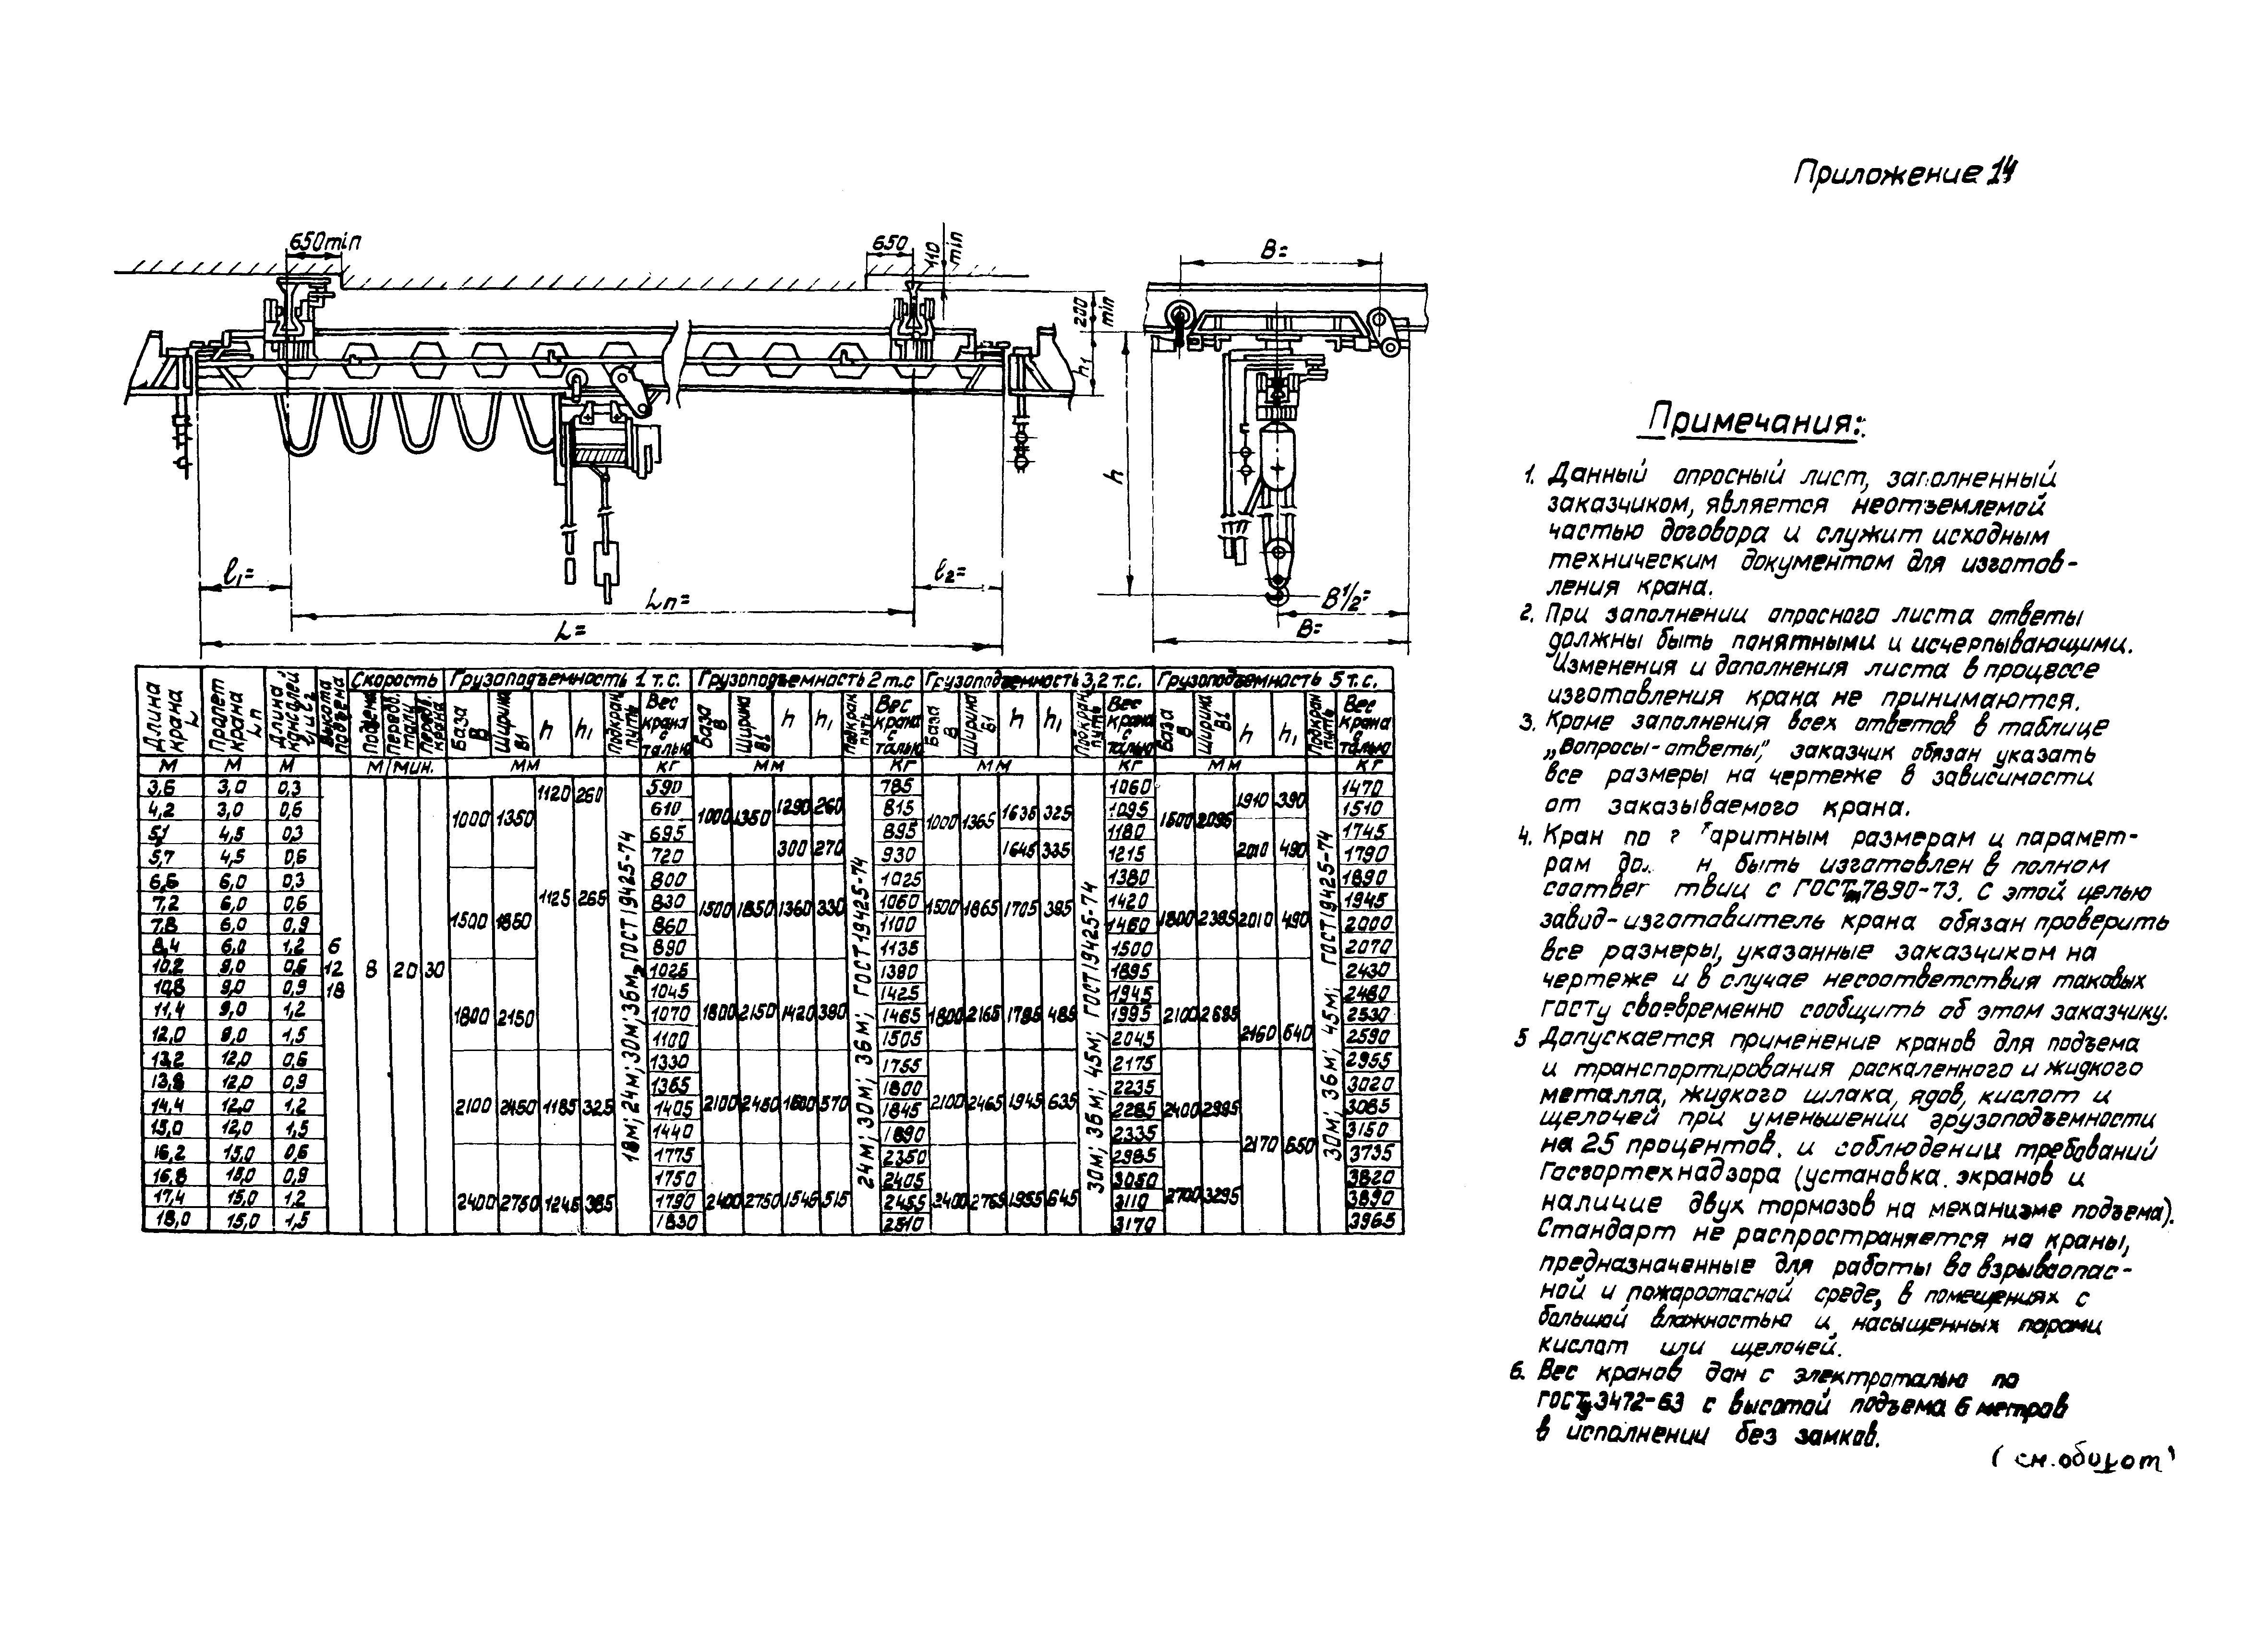 Приложение 14
650min
650
110
min
200
min
h₁
B=
h
l₁=
l₂=
Lп=
L=
B1/2=
B=
Длина крана L
Пролет крана Lп
Длина консолей l₁ и l₂
Высота подъема
Скорость
Подъема
Передв. тали
Передв. крана
Грузоподъемность 1 т.с.
База B
Ширина B1
h
h₁
Подкран путь
Вес крана с талью
Грузоподъемность 2 т.с
База B
Ширина B1
h
h₁
Подкран путь
Вес крана с талью
Грузоподъемность 3,2 т.с.
База B
Ширина B1
h
h₁
Подкран путь
Вес крана с талью
Грузоподъемность 5 т.с.
База B
Ширина B1
h
h₁
Подкран путь
Вес крана с талью
М М М М/мин. мм кг мм кг мм кг мм кг
3,6 3,0 0,3 590 785 1060 1470
4,2 3,0 0,6 610 815 1095 1510
5,1 4,5 0,3 695 895 1180 1745
5,7 4,5 0,6 720 930 1215 1790
6,6 6,0 0,3 800 1025 1380 1890
7,2 6,0 0,6 830 1060 1420 1945
7,8 6,0 0,9 860 1100 1460 2000
8,4 6,0 1,2 890 1135 1500 2070
10,2 9,0 0,6 1025 1380 1895 2430
10,8 9,0 0,9 1045 1425 1945 2480
11,4 9,0 1,2 1070 1465 1995 2530
12,0 9,0 1,5 1100 1505 2045 2590
13,2 12,0 0,6 1330 1755 2175 2955
13,8 12,0 0,9 1365 1800 2235 3020
14,4 12,0 1,2 1405 1845 2285 3085
15,0 12,0 1,5 1440 1890 2335 3150
16,2 15,0 0,6 1775 2350 2985 3735
16,8 15,0 0,9 1750 2405 3050 3820
17,4 15,0 1,2 1790 2455 3110 3890
18,0 15,0 1,5 1830 2510 3170 3965
6
12
18
8 20 30
1000 1350 1120 260
1500 1850 1125 265
1800 2150
2100 2450 1185 325
2400 2750 1245 385
18м; 24м; 30м; 36м, ГОСТ 19425-74
1000 1350 1290 260
300 270
1500 1850 1360 330
1800 2150 1420 390
2100 2450 1600 570
2400 2750 1545 515
24м; 30м; 36м; ГОСТ 19425-74
1000 1365 1635 325
1645 335
1500 1865 1705 395
1800 2165 1795 485
2100 2465 1945 635
2400 2765 1955 645
30м; 36м; 45м; ГОСТ 19425-74
1500 2095 1910 390
2010 490
1800 2395 2010 490
2100 2695 2160 640
2400 2995
2170 650
2700 3295
30м; 36м; 45м; ГОСТ 19425-74
Примечания:
1. Данный опросный лист, заполненный
заказчиком, является неотъемлемой
частью договора и служит исходным
техническим документом для изготов-
ления крана.
2. При заполнении опросного листа ответы
должны быть понятными и исчерпывающими.
Изменения и дополнения листа в процессе
изготовления крана не принимаются.
3. Кроме заполнения всех ответов в таблице
„Вопросы-ответы", заказчик обязан указать
все размеры на чертеже в зависимости
от заказываемого крана.
4. Кран по г аритным размерам и парамет-
рам до н быть изготовлен в полном
соответ твии с ГОСТ 7890-73. С этой целью
завод-изготовитель крана обязан проверить
все размеры, указанные заказчиком на
чертеже и в случае несоответствия таковых
госту своевременно сообщить об этом заказчику.
5 Допускается применение кранов для подъема
и транспортирования раскаленного и жидкого
металла, жидкого шлака, ядов, кислот и
щелочей при уменьшении грузоподъемности
на 25 процентов. и соблюдении требований
Госгортехнадзора (установка экранов и
наличие двух тормозов на механизме подъема).
Стандарт не распространяется на краны,
предназначенные для работы во взрывоопас-
ной и пожароопасной среде, в помещениях с
большой влажностью и насыщенных парами
кислот или щелочей.
6. Вес кранов дан с электроталью по
ГОСТу 3472-63 с высотой подъема 6 метров
в исполнении без замков.
(см. оборот)